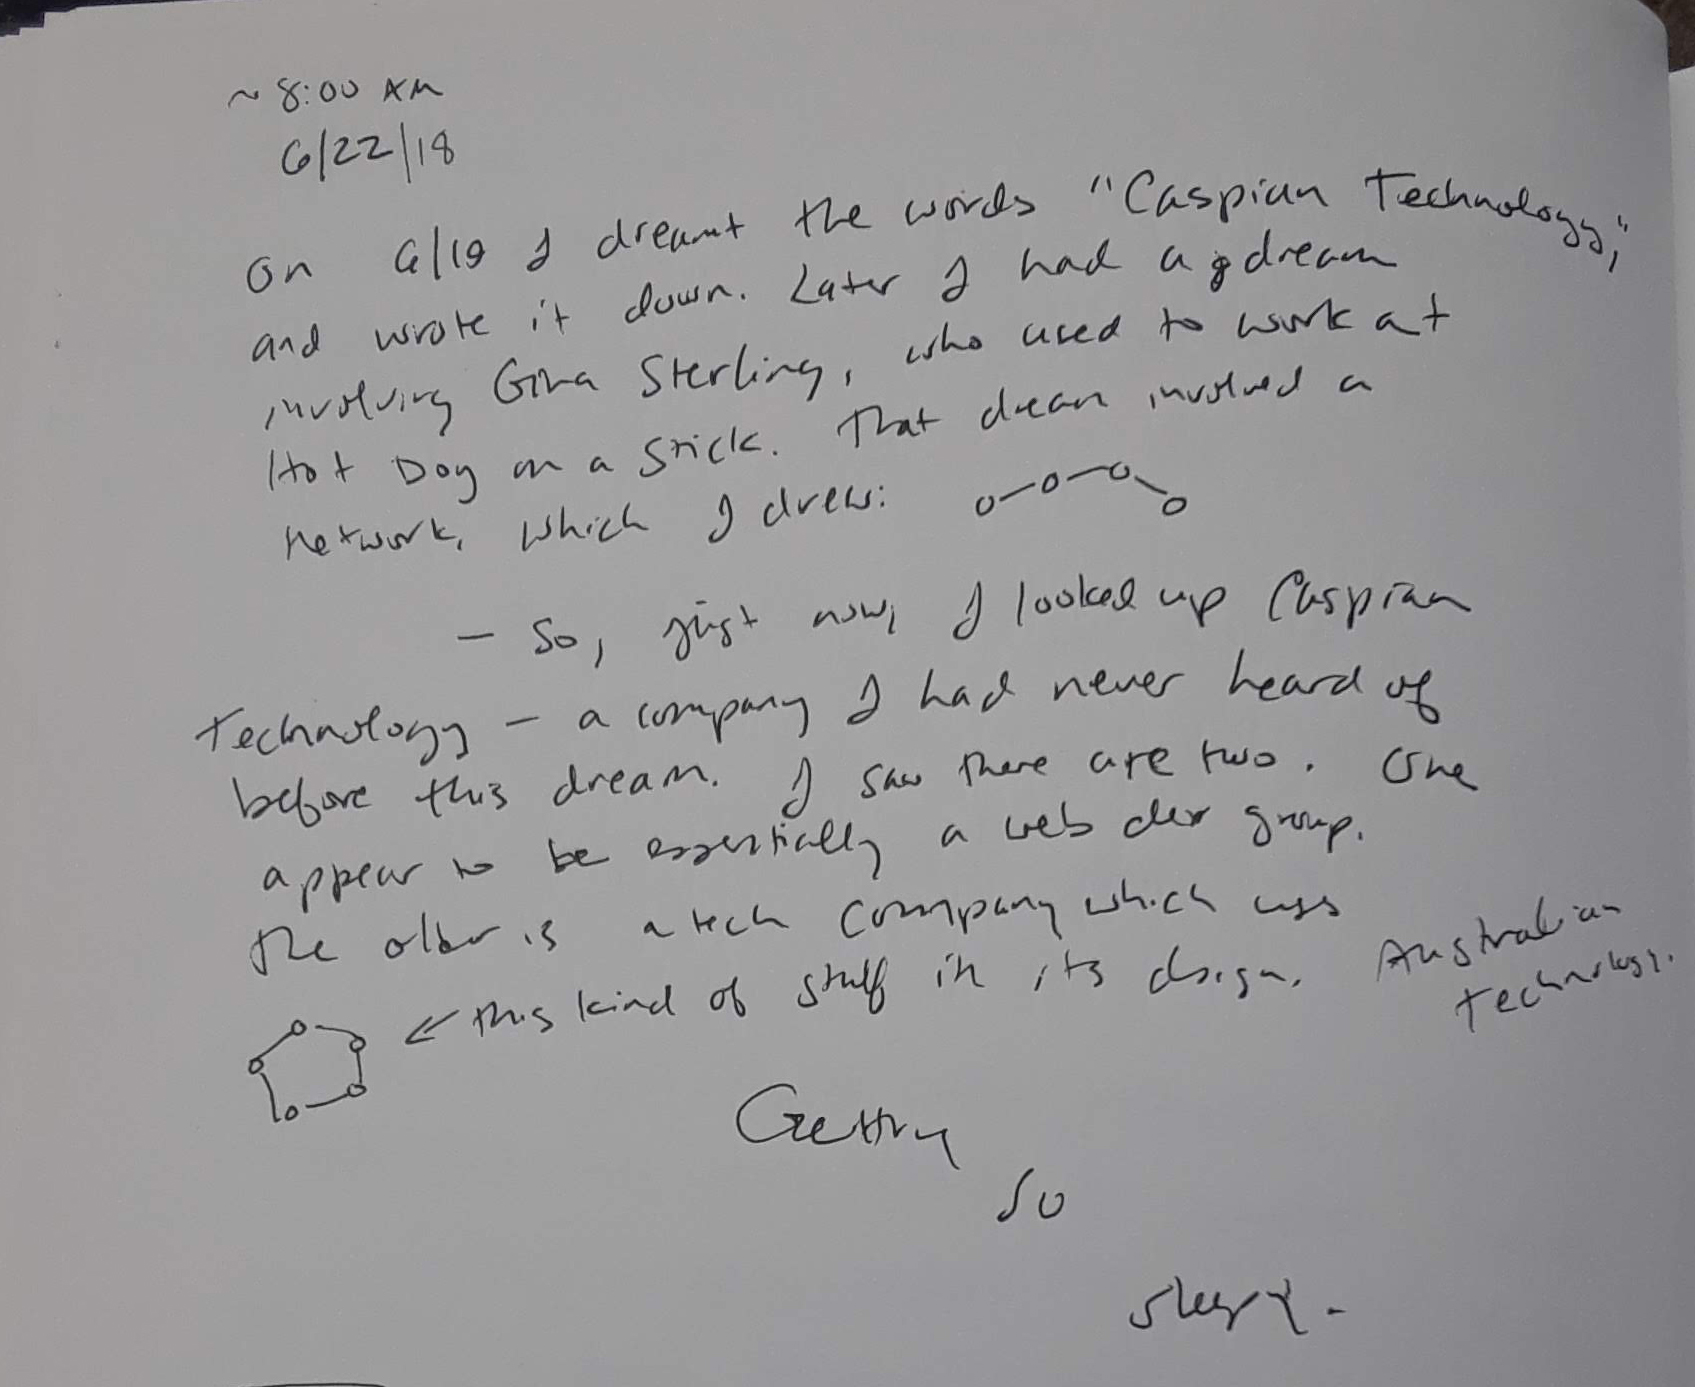 ~ 8:00 AM
6/22/18
On 6/19 I dreamt the words "Caspian Technology,"
and wrote it down. Later I had a dream
involving Gina Sterling, who used to work at
Hot Dog on a Stick. That dream involved a
network, which I drew:
- So, just now, I looked up Caspian
Technology - a company I had never heard of
before this dream. I saw there are two. One
appear to be essentially a web dev group.
The other is a tech company which uses
this kind of stuff in its design. Australian
technology.
Getting
so
sleepy.